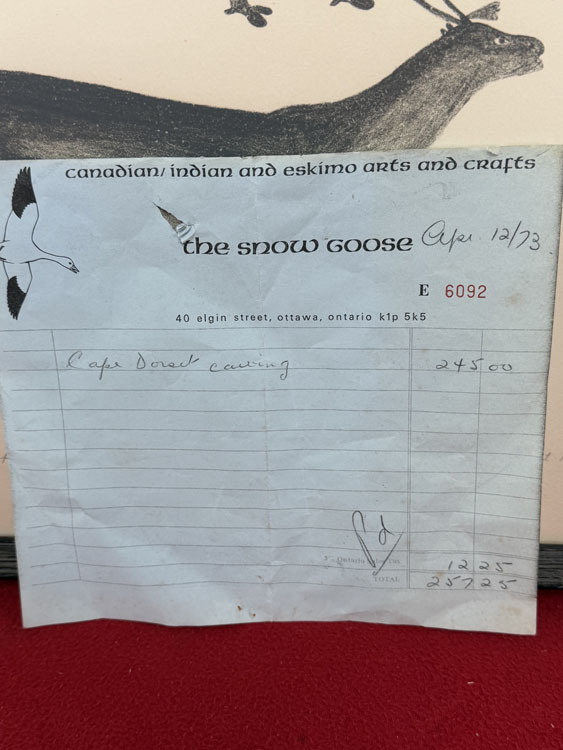 canadian/indian and eskimo arts and crafts
the snow goose
Apr. 12/73
E 6092
40 elgin street, ottawa, ontario k1p 5k5
Cape Dorset carving 245 00
P'd
12 25
TOTAL 257 25